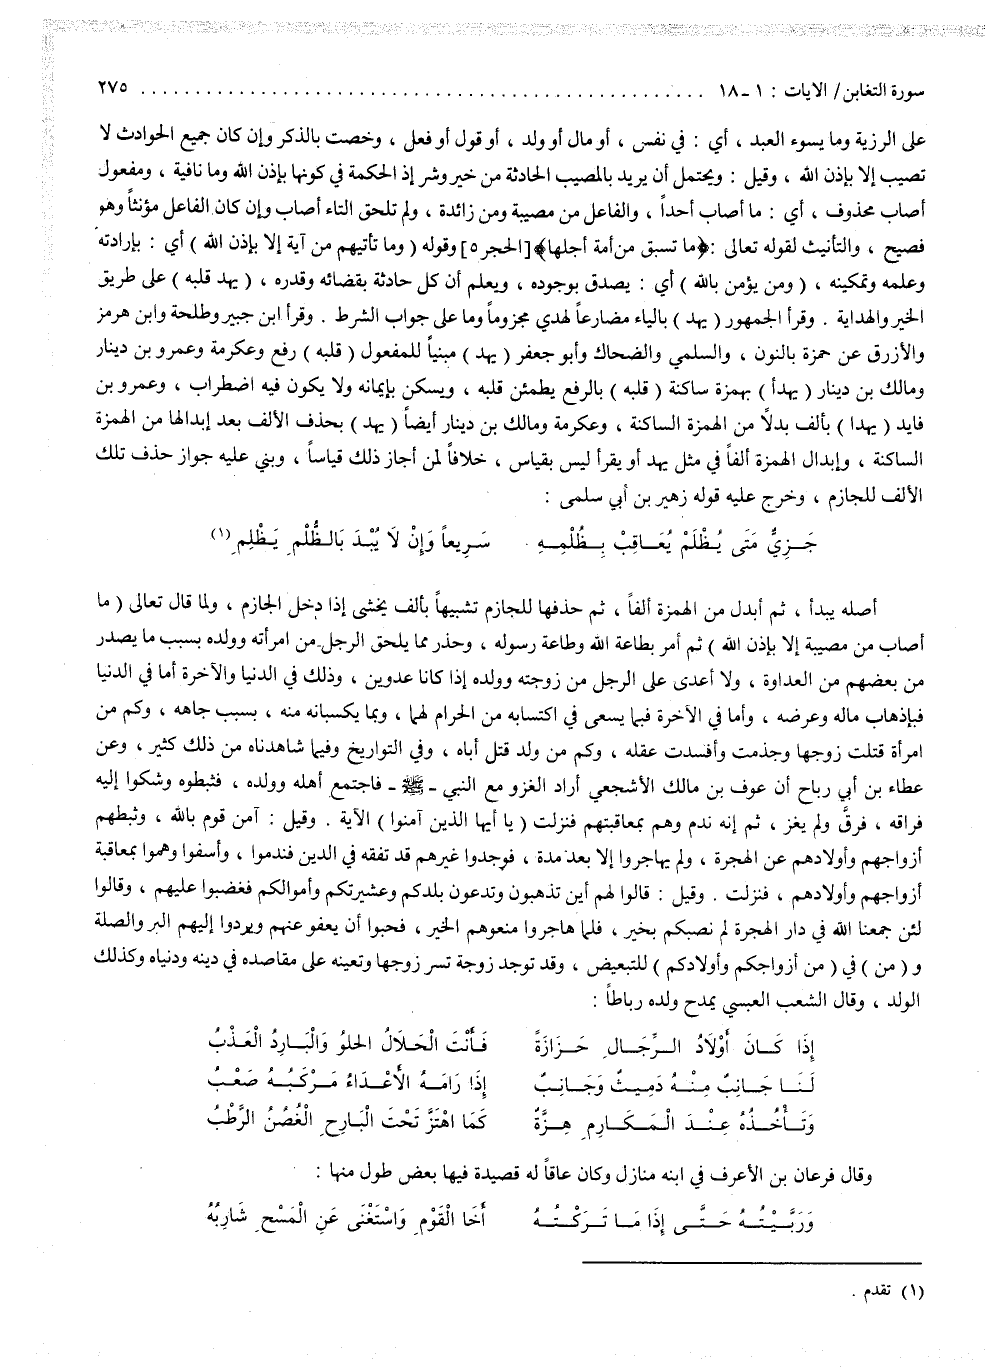 سورة التغابن/ الايات : ١ -١٨ ................................................ ٢٧٥
على الرزية وما يسوء العبد ، أي : في نفس ، أو مال أو ولد ، أو قول أو فعل ، وخصت بالذكر وإن كان جميع الحوادث لا
تصيب إلا بإذن الله ، وقيل : ويحتمل أن يريد بالمصيب الحادثة من خير وشر إذ الحكمة في كونها بإذن الله وما نافية ، ومفعول
أصاب محذوف ، أي : ما أصاب أحداً ، والفاعل من مصيبة ومن زائدة ، ولم تلحق التاء أصاب وإن كان الفاعل مؤنثاً وهو
فصيح ، والتأنيث لقوله تعالى :﴿ما تسبق من أمة أجلها﴾[الحجر ٥] وقوله ( وما تأتيهم من آية إلا بإذن الله ) أي : بإرادته
وعلمه وتمكينه ، ( ومن يؤمن بالله ) أي : يصدق بوجوده ، ويعلم أن كل حادثة بقضائه وقدره ، ( يهد قلبه ) على طريق
الخير والهداية . وقرأ الجمهور ( يهد ) بالياء مضارعاً لهدي مجزوماً وما على جواب الشرط . وقرأ ابن جبير وطلحة وابن هرمز
والأزرق عن حمزة بالنون ، والسلمي والضحاك وأبو جعفر ( يهد ) مبنياً للمفعول ( قلبه ) رفع وعكرمة وعمرو بن دينار
ومالك بن دينار ( يهدأ ) بهمزة ساكنة ( قلبه ) بالرفع يطمئن قلبه ، ويسكن بإيمانه ولا يكون فيه اضطراب ، وعمرو بن
فايد ( يهدا ) بألف بدلًا من الهمزة الساكنة ، وعكرمة ومالك بن دينار أيضاً ( يهد ) بحذف الألف بعد إبدالها من الهمزة
الساكنة ، وإبدال الهمزة ألفاً في مثل يهد أو يقرأ ليس بقياس ، خلافاً لمن أجاز ذلك قياساً ، وبني عليه جواز حذف تلك
الألف للجازم ، وخرج عليه قوله زهير بن أبي سلمى :
جَـرِيٌّ مَتَى يُـظْلَمْ يُعَـاقِبْ بِـظُلْمِـهِ سَـرِيعاً وَإِنْ لَا يُبْـدَ بَالـظُّلْمِ يَـظْلِمِ (١)
أصله يبدأ ، ثم أبدل من الهمزة ألفاً ، ثم حذفها للجازم تشبيهاً بألف يخشى إذا دخل الجازم ، ولما قال تعالى ( ما
أصاب من مصيبة إلا بإذن الله ) ثم أمر بطاعة الله وطاعة رسوله ، وحذر مما يلحق الرجل من امرأته وولده بسبب ما يصدر
من بعضهم من العداوة ، ولا أعدى على الرجل من زوجته وولده إذا كانا عدوين ، وذلك في الدنيا والآخرة أما في الدنيا
فبإذهاب ماله وعرضه ، وأما في الآخرة فبما يسعى في اكتسابه من الحرام لهما ، وبما يكسبانه منه ، بسبب جاهه ، وكم من
امرأة قتلت زوجها وجذمت وأفسدت عقله ، وكم من ولد قتل أباه ، وفي التواريخ وفيما شاهدناه من ذلك كثير ، وعن
عطاء بن أبي رباح أن عوف بن مالك الأشجعي أراد الغزو مع النبي ـ ﷺ ـ فاجتمع أهله وولده ، فثبطوه وشكوا إليه
فراقه ، فرقَّ ولم يغز ، ثم إنه ندم وهم بمعاقبتهم فنزلت ( يا أيها الذين آمنوا ) الآية . وقيل : آمن قوم بالله ، وثبطهم
أزواجهم وأولادهم عن الهجرة ، ولم يهاجروا إلا بعد مدة ، فوجدوا غيرهم قد تفقه في الدين فندموا ، وأسفوا وهموا بمعاقبة
أزواجهم وأولادهم ، فنزلت . وقيل : قالوا لهم أين تذهبون وتدعون بلدكم وعشيرتكم وأموالكم فغضبوا عليهم ، وقالوا
لئن جمعنا الله في دار الهجرة لم نصبكم بخير ، فلما هاجروا منعوهم الخير ، فحبوا أن يعفو عنهم ويردوا إليهم البر والصلة
و ( من ) في ( من أزواجكم وأولادكم ) للتبعيض ، وقد توجد زوجة تسر زوجها وتعينه على مقاصده في دينه ودنياه وكذلك
الولد ، وقال الشعب العبسي يمدح ولده رباطاً :
إِذَا كَـانَ أَوْلَادُ الـرِّجَـالِ حَـزَازَةً فَـأَنْتَ الْحَـلَالُ الحلوُ وَالْبَـارِدُ الْعَذْبُ
لَـنَـا جَـانِبٌ مِنْـهُ دَمِيـثٌ وَجَـانِبٌ إِذَا رَامَـهُ الأَعْـدَاءُ مَـرْكَبُـهُ صَعْبُ
وَتَـأْخُـذُهُ عِنْـدَ الْـمَكَـارِمِ هِـزَّةٌ كَمَا اهْتَزَّ تَحْتَ الْبَارِحِ الْغُصُنُ الرَّطْبُ
وقال فرعان بن الأعرف في ابنه منازل وكان عاقاً له قصيدة فيها بعض طول منها :
وَرَبَّـيْتُـهُ حَتَّـى إِذَا مَـا تَـرَكْتُـهُ أَخَا الْقَوْمِ وَاسْتَغْنَى عَنِ الْمَسْحِ شَارِبُهُ
(١) تقدم .